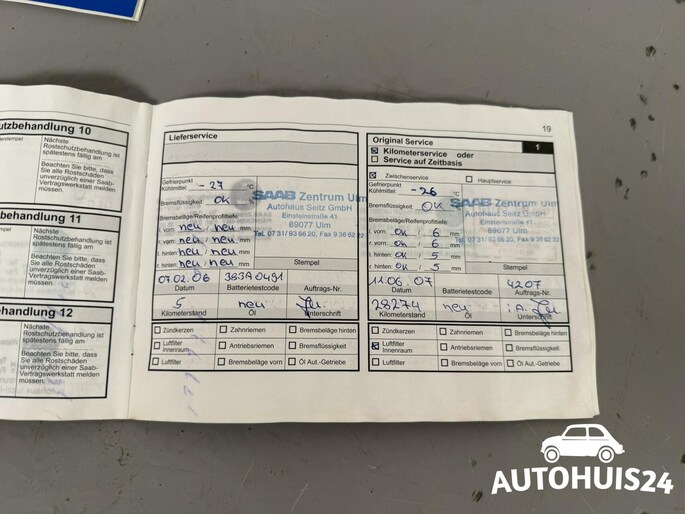 19
utzbehandlung 10
Nächste
Rostschutzbehandlung ist
spätestens fällig am
Beachten Sie bitte, dass
Sie alle Rostschäden
unverzüglich einer Saab-
Vertragswerkstatt melden
müssen.
behandlung 11
Nächste
Rostschutzbehandlung ist
spätestens fällig am
Beachten Sie bitte, dass
Sie alle Rostschäden
unverzüglich einer Saab-
Vertragswerkstatt melden
müssen.
ehandlung 12
Nächste
Rostschutzbehandlung ist
spätestens fällig am
Beachten Sie bitte, dass
Sie alle Rostschäden
unverzüglich einer Saab-
Vertragswerkstatt melden
müssen.
Lieferservice
Gefrierpunkt
Kühlmittel: -27 °C
Bremsflüssigkeit: OK
SAAB Zentrum Ulm
Autohaus Seitz GmbH
Einsteinstraße 41
89077 Ulm
Tel. 07 31/93 66 20, Fax 9 36 62 22
Bremsbeläge/Reifenprofiltiefe
l. vorn: neu / neu mm
r. vorn: neu / neu mm
l. hinten: neu / neu mm
r. hinten: neu / neu mm
Stempel
07.02.06 383A0491
Datum Batterietestcode Auftrags-Nr.
5 neu
Kilometerstand Öl Unterschrift
Zündkerzen Zahnriemen Bremsbeläge hinten
Luftfilter Innenraum Antriebsriemen Bremsflüssigkeit
Luftfilter Bremsbeläge vorn Öl Aut.-Getriebe
Original Service 1
Kilometerservice oder
Service auf Zeitbasis
Zwischenservice Hauptservice
Gefrierpunkt
Kühlmittel: -26 °C
Bremsflüssigkeit: OK
SAAB Zentrum Ulm
Autohaus Seitz GmbH
Einsteinstraße 41
89077 Ulm
Tel. 07 31/93 66 20, Fax 9 36 62 22
Bremsbeläge/Reifenprofiltiefe
l. vorn: OK / 6 mm
r. vorn: OK / 6 mm
l. hinten: OK / 5 mm
r. hinten: OK / 5 mm
Stempel
11.06.07 4207
Datum Batterietestcode Auftrags-Nr.
28274 neu i.A.
Kilometerstand Öl Unterschrift
Zündkerzen Zahnriemen Bremsbeläge hinten
Luftfilter Innenraum Antriebsriemen Bremsflüssigkeit
Luftfilter Bremsbeläge vorn Öl Aut.-Getriebe
AUTOHUIS24